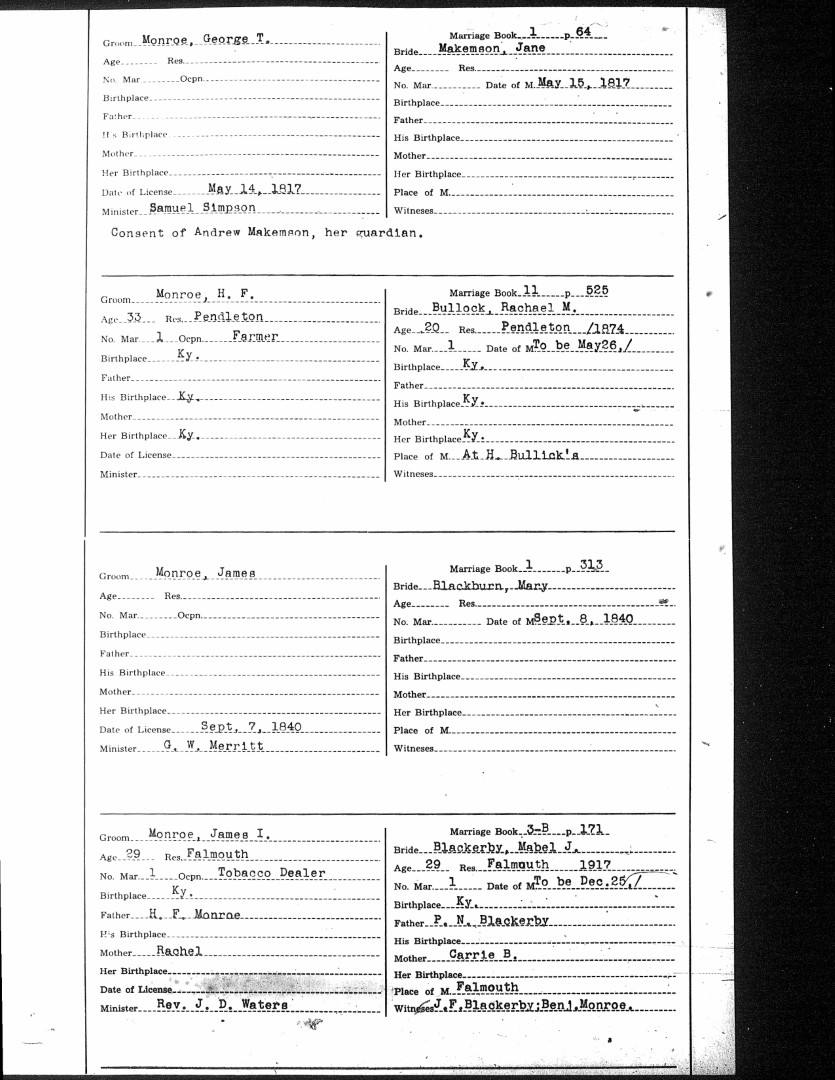 Groom Monroe, George T.
Age Res.
No. Mar Ocpn.
Birthplace
Father
His Birthplace
Mother
Her Birthplace
Date of License May 14, 1817
Minister Samuel Simpson
Marriage Book 1 p. 64
Bride Makemson, Jane
Age Res.
No. Mar Date of M. May 15, 1817
Birthplace
Father
His Birthplace
Mother
Her Birthplace
Place of M.
Witnesses
Consent of Andrew Makemson, her guardian.
Groom Monroe, H. F.
Age 33 Res. Pendleton
No. Mar 1 Ocpn. Farmer
Birthplace Ky.
Father
His Birthplace Ky.
Mother
Her Birthplace Ky.
Date of License
Minister
Marriage Book 11 p. 525
Bride Bullock, Rachael M.
Age 20 Res. Pendleton /1874
No. Mar 1 Date of M To be May26,/
Birthplace Ky.
Father
His Birthplace Ky.
Mother
Her Birthplace Ky.
Place of M. At H. Bullick's
Witnesses
Groom Monroe, James
Age Res.
No. Mar. Ocpn.
Birthplace
Father
His Birthplace
Mother
Her Birthplace
Date of License Sept. 7, 1840
Minister G. W. Merritt
Marriage Book 1 p. 313
Bride Blackburn, Mary
Age Res.
No. Mar. Date of M Sept. 8, 1840
Birthplace
Father
His Birthplace
Mother
Her Birthplace
Place of M.
Witnesses
Groom Monroe, James I.
Age 29 Res. Falmouth
No. Mar. 1 Ocpn. Tobacco Dealer
Birthplace Ky.
Father H. F. Monroe
His Birthplace
Mother Rachel
Her Birthplace
Date of License
Minister Rev. J. D. Waters
Marriage Book 3-B p. 171
Bride Blackerby, Mabel J.
Age 29 Res. Falmouth 1917
No. Mar. 1 Date of M To be Dec.25,/
Birthplace Ky.
Father P. N. Blackerby
His Birthplace
Mother Carrie B.
Her Birthplace
Place of M. Falmouth
Witnesses J.F.Blackerby;Benj.Monroe.